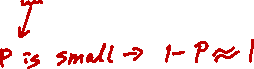 P is small → 1 - P ≈ 1